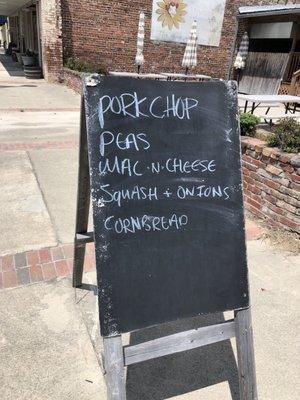 PORK CHOP
PEAS
MAC·N·CHEESE
SQUASH + ONIONS
CORNBREAD